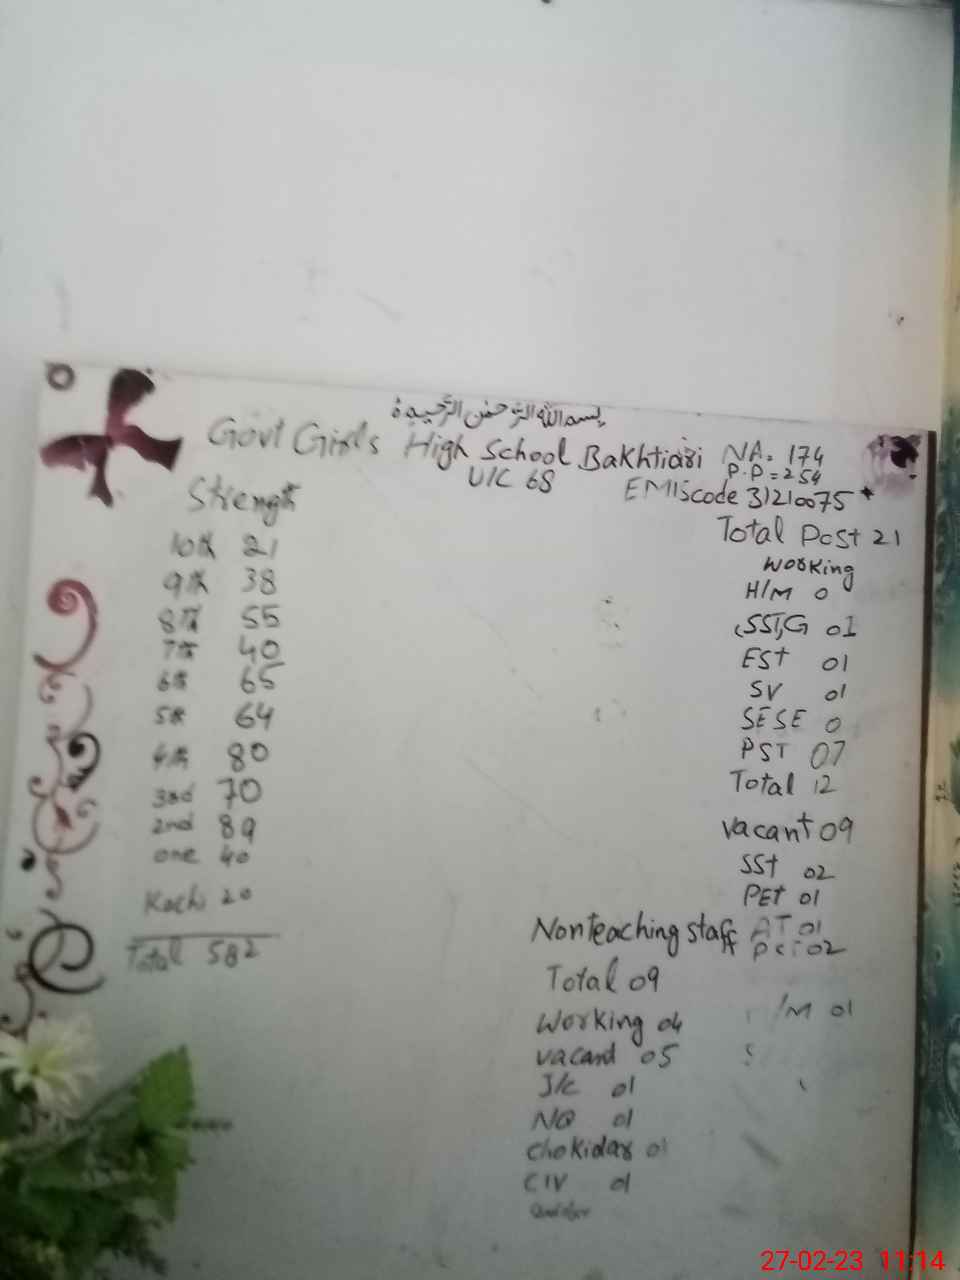 بسم الله الرحمن الرحيم
Govt Girls High School Bakhtiari NA. 174
P.P=254
U/C 68
EMIScode 31210075 *
Strength
10th 21
9th 38
8th 55
7th 40
6th 65
5th 64
4th 80
3rd 70
2nd 89
one 40
Kachi 20
Total 582
Total Post 21
Working
H/M 0
SST,G 01
EST 01
SV 01
SESE 0
PST 07
Total 12
Vacant 09
SSt 02
PEt 01
AT 01
02
/M 01
Nonteaching staff
Total 09
Working 04
Vacant 05
J/C 01
NQ 01
Chokidar 01
CIV 01
27-02-23 11:14